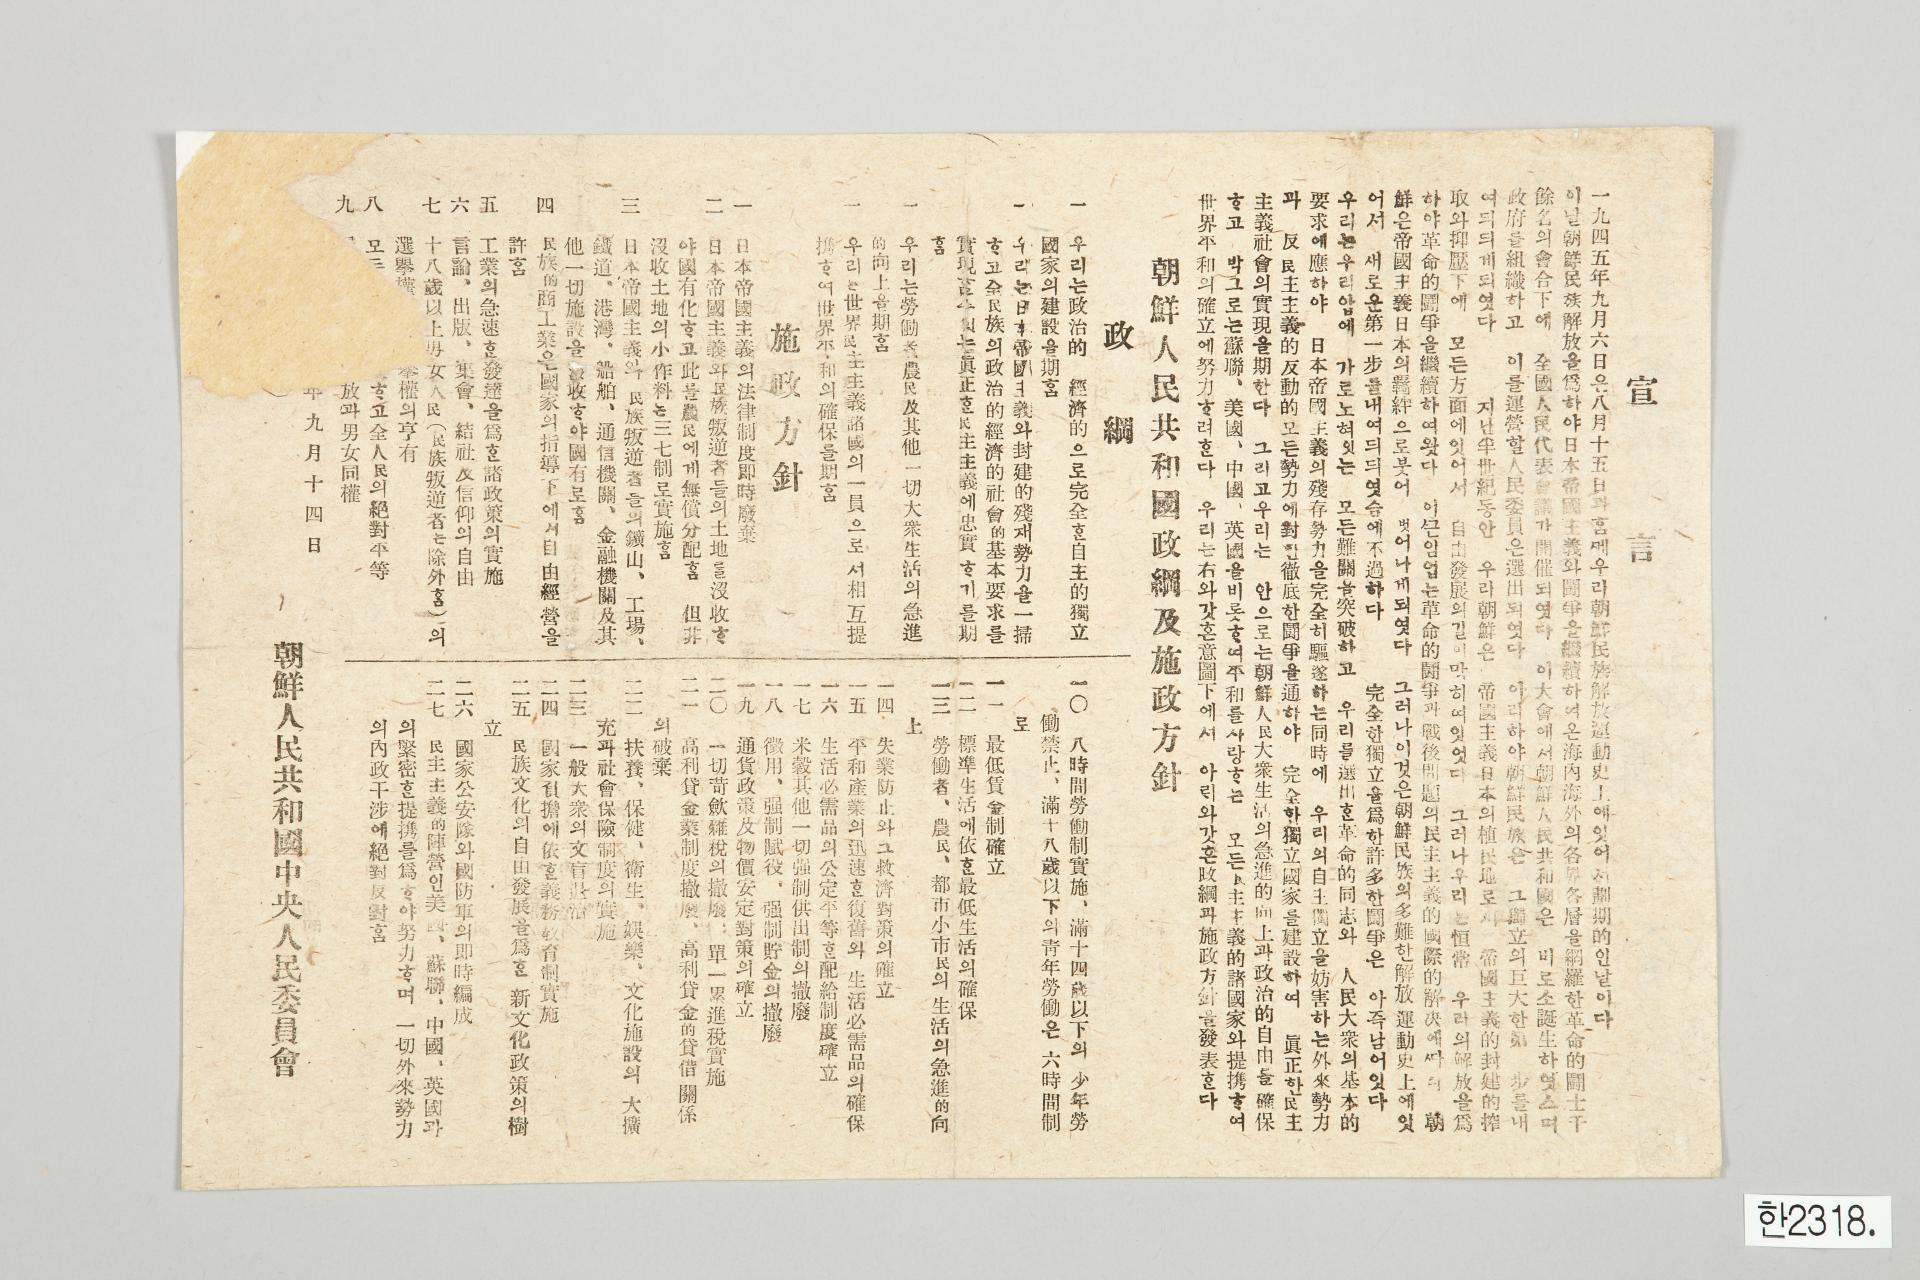 宣言
一九四五年九月六日은八月十五日과함께우리朝鮮民族解放運動史上에잇어서劃期的인날이다
이날朝鮮民族解放을爲하야日本帝國主義와鬪爭을繼續하여온海內海外의各界各層을網羅한革命的鬪士千
餘名의會合下에 全國人民代表會議가開催되엿다 이大會에서朝鮮人民共和國은 비로소誕生하엿스며
政府를組織하고 이를運營할人民委員은選出되엿다 이리하야朝鮮民族은 그獨立의巨大한第一步를내
여듸듸게되엿다 지난半世紀동안 우리朝鮮은 帝國主義日本의植民地로서 帝國主義的封建的搾
取와抑壓下에 모든方面에잇어서 自由發展의길이막히여잇엇다 그러나우리는恒常 우리의解放을爲
하야革命的鬪爭을繼續하여왓다 이번임업는革命的鬪爭과戰後問題의民主主義的國際的解決에따라 朝
鮮은帝國主義日本의羈絆으로붓어 벗어나게되엿다 그러나이것은朝鮮民族의多難한解放運動史上에잇
어서 새로운第一步를내여듸듸엿슴에不過하다 完全한獨立을爲한許多한鬪爭은 아즉남어잇다
우리는우리압에 가로노혀잇는 모든難關을突破하고 우리를選出ᄒᆞᆫ革命的同志와 人民大衆의基本的
要求에應하야 日本帝國主義의殘存勢力을完全히驅逐하는同時에 우리의自主獨立을妨害하는外來勢力
과 反民主主義的反動的모든勢力에對한徹底한鬪爭을通하야 完全한獨立國家를建設하여 眞正한民主
主義社會의實現을期한다 그리고우리는 안으로는朝鮮人民大衆生活의急進的向上과政治的自由를確保
ᄒᆞ고 박그로는蘇聯、美國、中國、英國을비롯ᄒᆞ여平和를사랑ᄒᆞ는 모든民主主義的諸國家와提携ᄒᆞ여
世界平和의確立에努力ᄒᆞ려ᄒᆞᆫ다 우리는右와갓ᄒᆞᆫ意圖下에서 아릭와갓ᄒᆞᆫ政綱과施政方針을發表ᄒᆞᆫ다
朝鮮人民共和國政綱及施政方針
政綱
一 우리는政治的 經濟的으로完全ᄒᆞᆫ自主的獨立
國家의建設을期홈
一 우리는日本帝國主義와封建的殘滓勢力을一掃
ᄒᆞ고全民族의政治的經濟的社會的基本要求를
實現할수잇는眞正ᄒᆞᆫ民主主義에忠實ᄒᆞ기를期
홈
一 우리는勞働者農民及其他一切大衆生活의急進
的向上을期홈
一 우리는世界民主主義諸國의一員으로서相互提
携ᄒᆞ여世界平和의確保를期홈
施政方針
一 日本帝國主義의法律制度即時廢棄
二 日本帝國主義와民族叛逆者들의土地를沒收ᄒᆞ
야國有化ᄒᆞ고此를農民에게無償分配홈 但非
沒收土地의小作料는三七制로實施홈
三 日本帝國主義와民族叛逆者들의鑛山、工場、
鐵道、港灣、船舶、通信機關、金融機關及其
他一切施設을沒收ᄒᆞ야國有로홈
四 民族的商工業은國家의指導下에서自由經營을
許홈
五 工業의急速ᄒᆞᆫ發達을爲ᄒᆞᆫ諸政策의實施
六 言論、出版、集會、結社及信仰의自由
七 十八歲以上男女人民(民族叛逆者는除外홈)의
選擧權 擧權의享有
八 모든 ᄒᆞ고全人民의絕對平等
九 放과男女同權
一〇 八時間勞働制實施、滿十四歲以下의少年勞
働禁止、滿十八歲以下의靑年勞働은六時間制
로
一一 最低賃金制確立
一二 標準生活에依ᄒᆞᆫ最低生活의確保
一三 勞働者、農民、都市小市民의生活의急進的向
上
一四 失業防止와그救濟對策의確立
一五 平和產業의迅速ᄒᆞᆫ復舊와 生活必需品의確保
一六 生活必需品의公定平等ᄒᆞᆫ配給制度確立
一七 米穀其他一切强制供出制의撤廢
一八 徵用、强制賦役、强制貯金의撤廢
一九 通貨政策及物價安定對策의確立
二〇 一切苛斂雜稅의撤廢、單一累進稅實施
二一 高利貸金業制度撤廢、高利貸金的貸借關係
의破棄
二二 扶養、保健、衛生、娛樂、文化施設의 大擴
充과社會保險制度의實施
二三 一般大衆의文盲退治
二四 國家負擔에依ᄒᆞᆫ義務敎育制實施
二五 民族文化의自由發展을爲ᄒᆞᆫ 新文化政策의樹
立
二六 國家公安隊와國防軍의即時編成
二七 民主主義的陣營인美國、蘇聯、中國、英國과
의緊密ᄒᆞᆫ提携를爲ᄒᆞ야努力ᄒᆞ며 一切外來勢力
의內政干涉에絕對反對홈
年九月十四日
朝鮮人民共和國中央人民委員會
한2318.